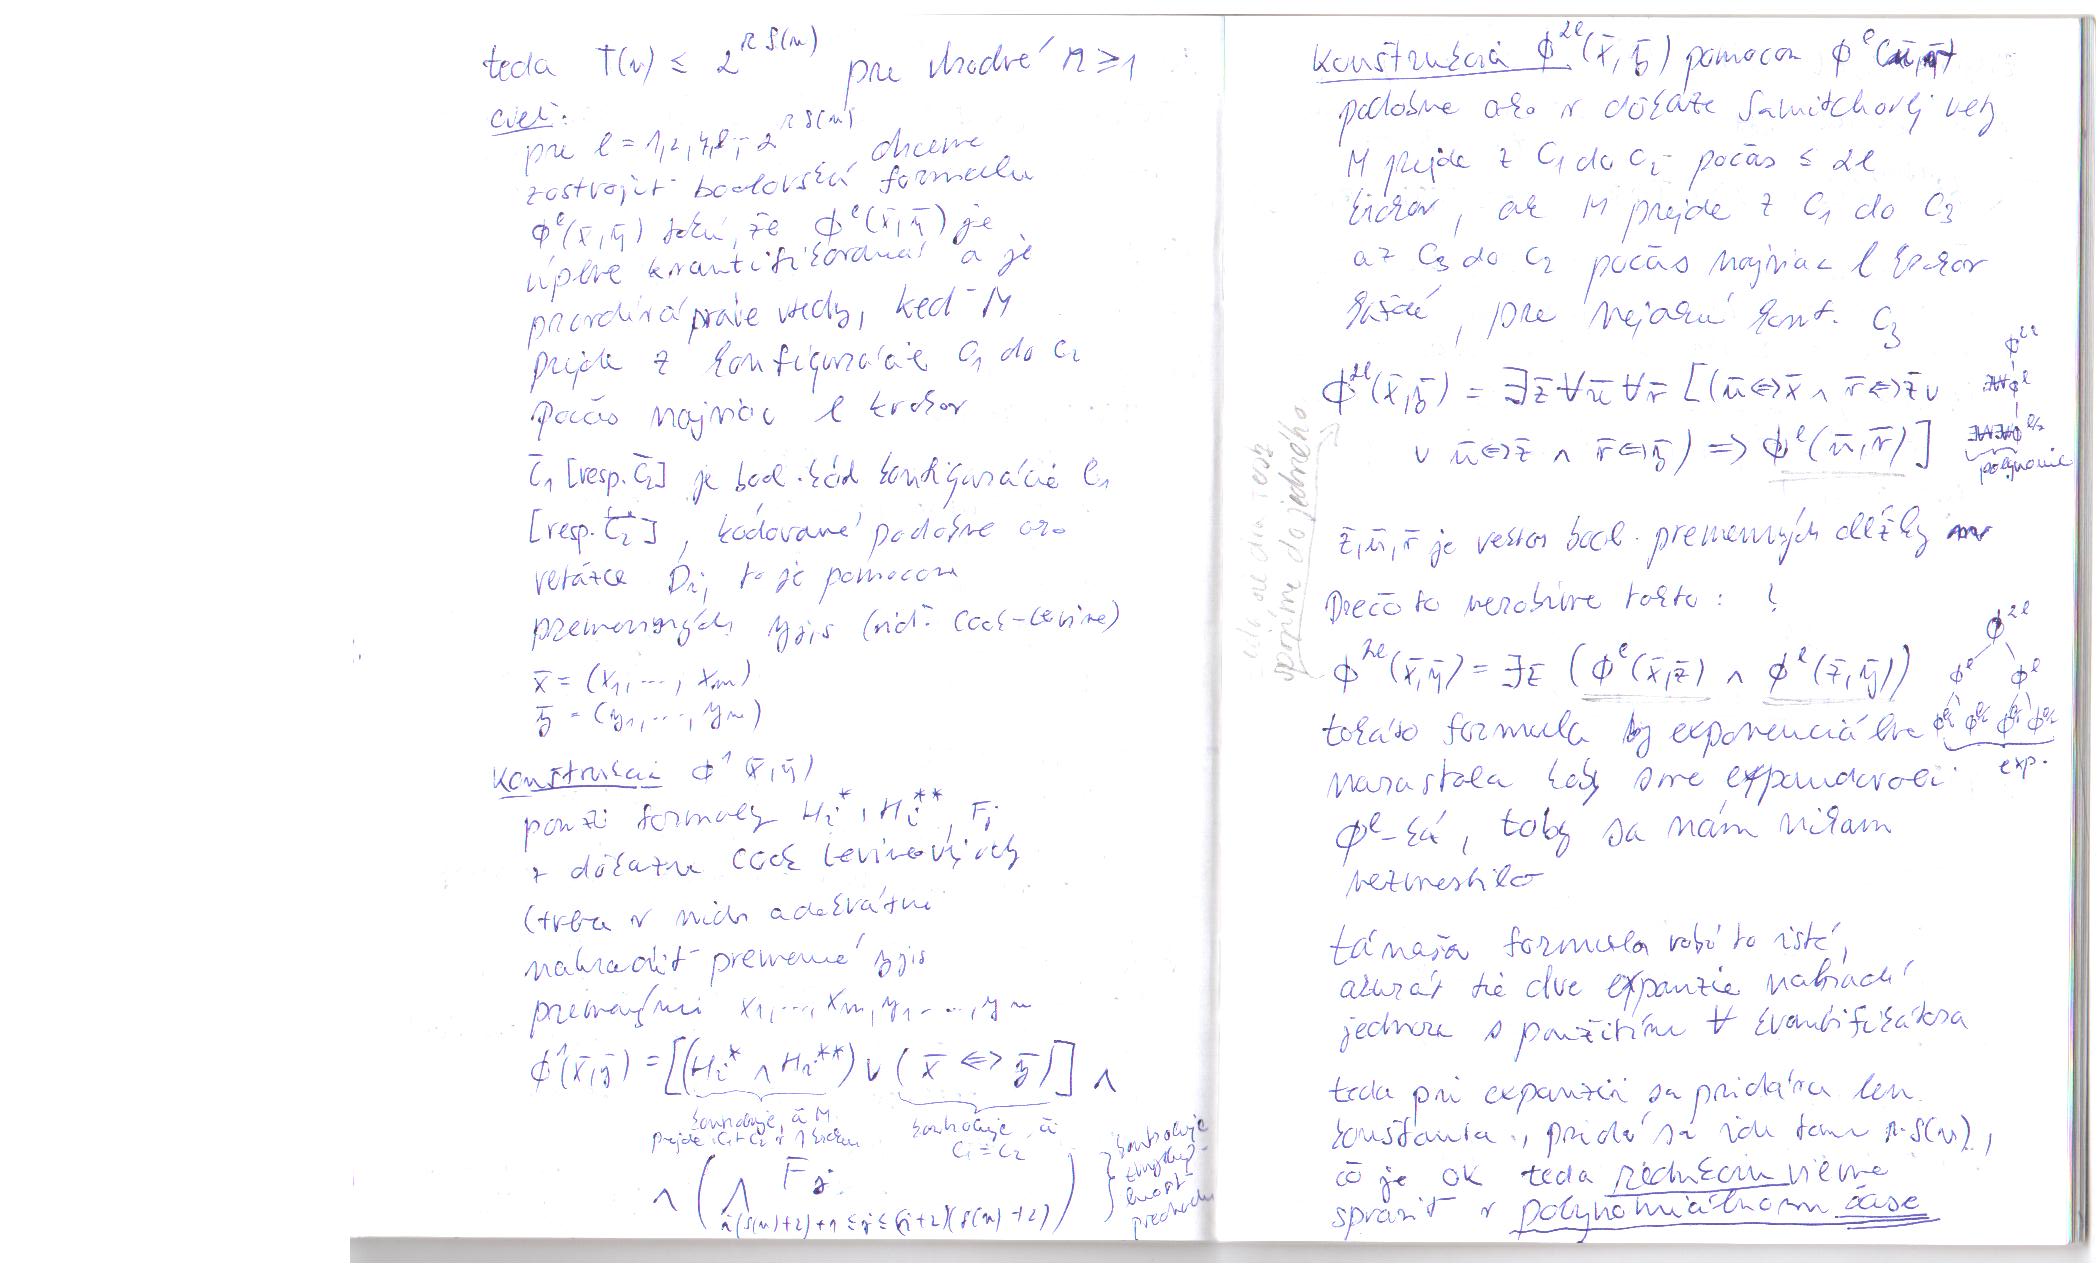 teda T(n) ≤ 2^{r S(n)} pre vhodné r ≥ 1
cieľ:
pre l = 1, 2, 4, 8, ..., 2^{r S(n)} chceme
zostrojiť boolovskú formulu
ϕ^l(x̄, ȳ) takú, že ϕ^l(x̄, ȳ) je
úplne kvantifikovaná a je
pravdivá práve vtedy, keď M
prejde z konfigurácie C₁ do C₂
počas najviac l krokov
C̄₁ [resp. C̄₂] je bool. kód konfigurácie C₁
[resp. C̄₂], kódované podobne ako
reťazce Di, to je pomocou
premenných yjis (viď. Cook-Levine)
x̄ = (x₁, ..., xm)
ȳ = (y₁, ..., ym)
Konštrukcia ϕ¹(x̄, ȳ)
použi formuly Hi*, Hi**, Fj
z dôkazu Cook Levinových
(treba v nich adekvátne
nahradiť premenné yjis
premennými x₁, ..., xm, y₁, ..., ym
ϕ¹(x̄, ȳ) = [(Hi* ∧ Hi**) ∨ (x̄ ⇔ ȳ)] ∧
kontroluje, či M
prejde C₁ C₂ v 1 kroku
kontroluje, či
C₁ = C₂
∧ ( ∧ Fj )
i(S(n)+2)+1 ≤ j ≤ (i+2)(S(n)+2)
kontroluje
zmyslupl-
nosť
prechodu
Konštrukcia ϕ^{2l}(x̄, ȳ) pomocou ϕ^l
podobne ako v dôkaze Savitchovej vety
M prejde z C₁ do C₂ počas ≤ 2l
krokov, ak M prejde z C₁ do C₃
a z C₃ do C₂ počas najviac l krokov
každé, pre nejakú konf. C₃
ϕ^{2l}(x̄, ȳ) = ∃z̄ ∀ū ∀v̄ [(ū⇔x̄ ∧ v̄⇔z̄ ∨
∨ ū⇔z̄ ∧ v̄⇔ȳ) ⇒ ϕ^l(ū, v̄)]
ϕ^{2l}
∃∀∀ϕ^l
ϕ^{l/2}
polynomic
spojíme do jedného
z̄, ū, v̄ je vektor bool. premenných dĺžky m
Prečo to nerobíme takto: ?
ϕ^{2l}(x̄, ȳ) = ∃z̄ (ϕ^l(x̄, z̄) ∧ ϕ^l(z̄, ȳ))
ϕ^{2l}
ϕ^l ϕ^l
ϕ^{l/2} ϕ^{l/2} ϕ^{l/2} ϕ^{l/2}
exp.
takáto formula by exponenciálne
narastala keby sme expandovali
ϕ^l-ká, toby sa nám nikam
nezmestilo
tá naša formula robí to isté,
akurát tie dve expanzie nahradí
jednou s použitím ∀ kvantifikátora
teda pri expanzii sa pridáva len
konštanta, pridá sa ich tam r·S(n),
čo je ok teda redukciu vieme
spraviť v polynomiálnom čase